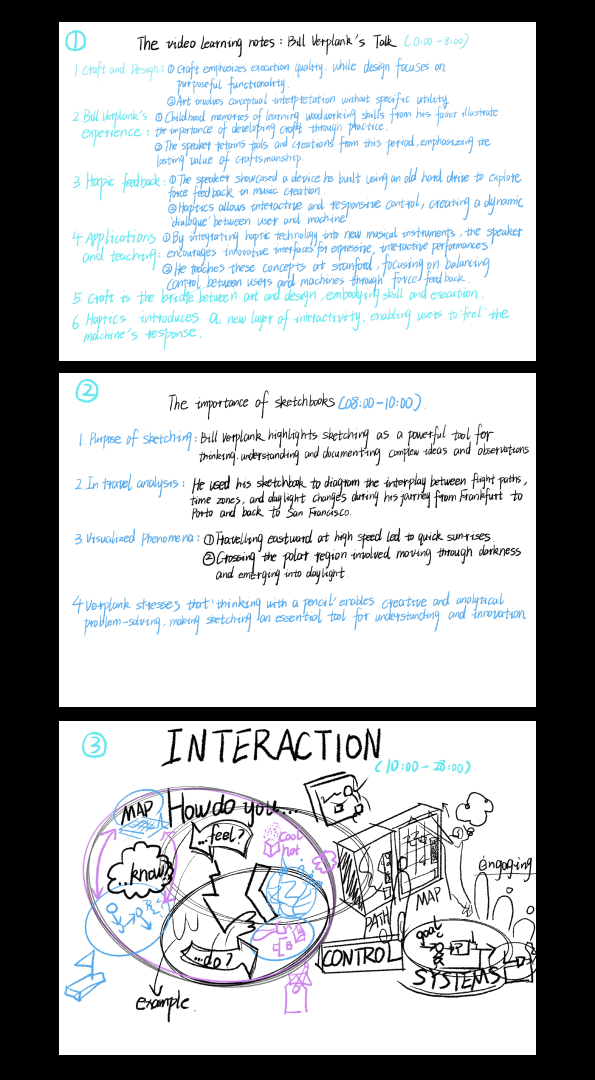 ①
The video learning notes : Bill Verplank's Talk (0:00 - 8:00)
1 Craft and Design : ① Craft emphasizes execution quality. while design focuses on
purposeful functionality.
② Art involves conceptual interpretation without specific utility
2 Bill Verplank's ① Childhood memories of learning woodworking skills from his father illustrate
experience : the importance of developing craft through practice.
② The speaker retains tools and creations from this period, emphasizing the
lasting value of craftsmanship
3 Haptic feedback : ① The speaker showcased a device he built using an old hard drive to explore
force feedback in music creation.
② Haptics allows interactive and responsive control, creating a dynamic
'dialogue' between user and machine
4 Applications ① By integrating haptic technology into new musical instruments, the speaker
and teaching : encourages innovative interfaces for expressive, interactive performances
② He teaches these concepts at stanford, focusing on balancing
control between users and machines through force feedback.
5 Craft is the bridge between art and design, embodying skill and execution.
6 Haptics introduces a new layer of interactivity, enabling users to 'feel' the
machine's response.
②
The importance of sketchbooks (08:00-10:00)
1. Purpose of sketching : Bill Verplank highlights sketching as a powerful tool for
thinking. understanding and documenting complex ideas and observations
2 In travel analysis : He used his sketchbook to diagram the interplay between flight paths,
time zones, and daylight changes during his journey from Frankfurt to
Porto and back to San Francisco.
3 Visualized Phenomena : ① Travelling eastward at high speed led to quick sunrises.
② Crossing the polar region involved moving through darkness
and emerging into daylight
4 Verplank stresses that 'thinking with a pencil' enables creative and analytical
problem-solving, making sketching an essential tool for understanding and innovation
③
INTERACTION
(10:00 - 28:00)
MAP
How do you...
...feel?
cool
hot
...know?
...do?
example.
PATH
MAP
engaging
CONTROL
goal
SYSTEMS